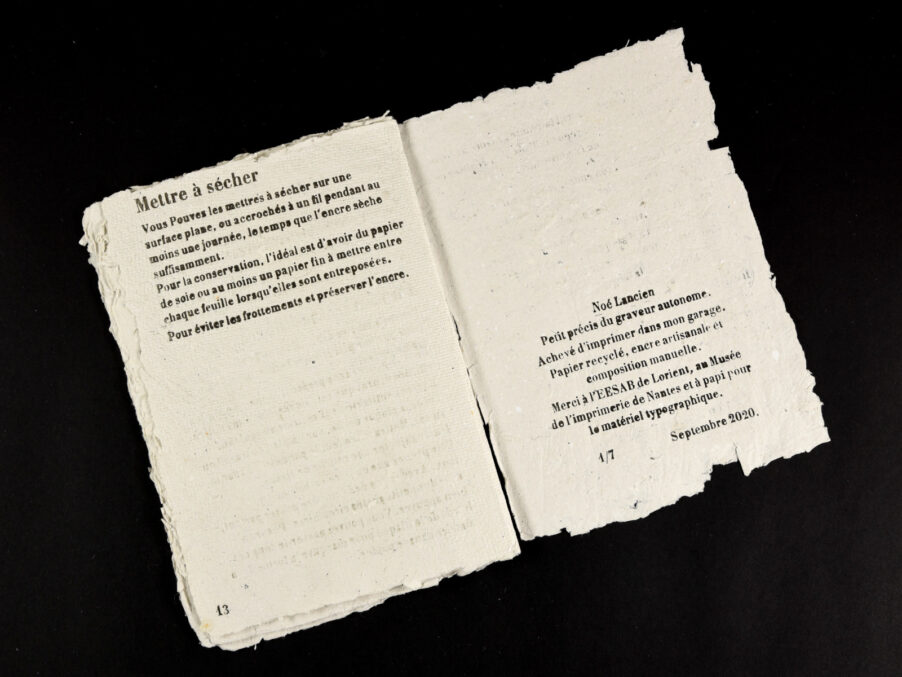 Mettre à sécher
Vous Pouves les mettres à sécher sur une
surface plane, ou accrochés à un fil pendant au
moins une journée, le temps que l'encre sèche
suffisamment.
Pour la conservation, l'idéal est d'avoir du papier
de soie ou au moins un papier fin à mettre entre
chaque feuille lorsqu'elles sont entreposées.
Pour éviter les frottements et préserver l'encre.
13
Noé Lancien
Petit précis du graveur autonome.
Achevé d'imprimer dans mon garage.
Papier recyclé, encre artisanale et
composition manuelle.
Merci à l'EESAB de Lorient, au Musée
de l'imprimerie de Nantes et à papi pour
le matériel typographique.
Septembre 2020.
1/7